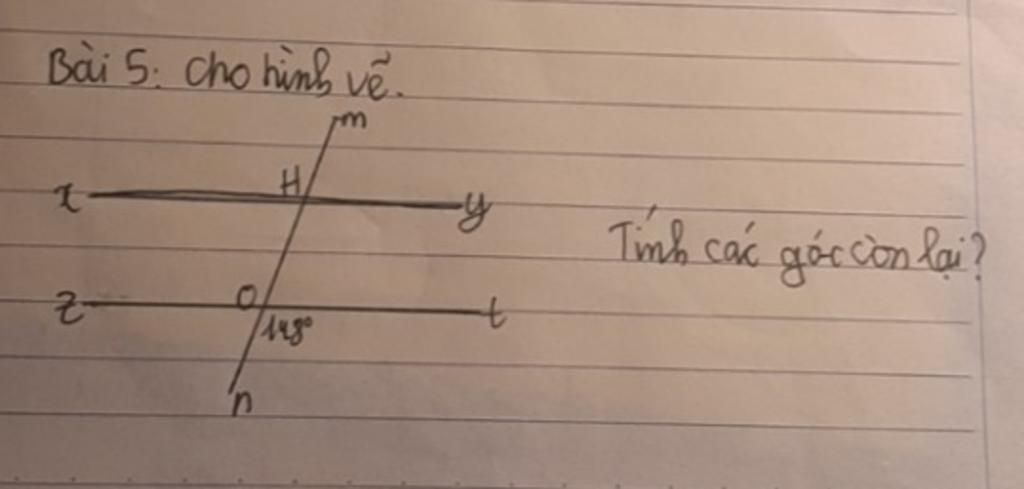 Bài 5: Cho hình vẽ.
m
H
x
y
Tính các góc còn lại?
z
O
t
148°
n